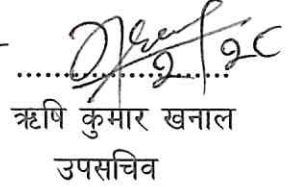 २।२८
ऋषि कुमार खनाल
उपसचिव